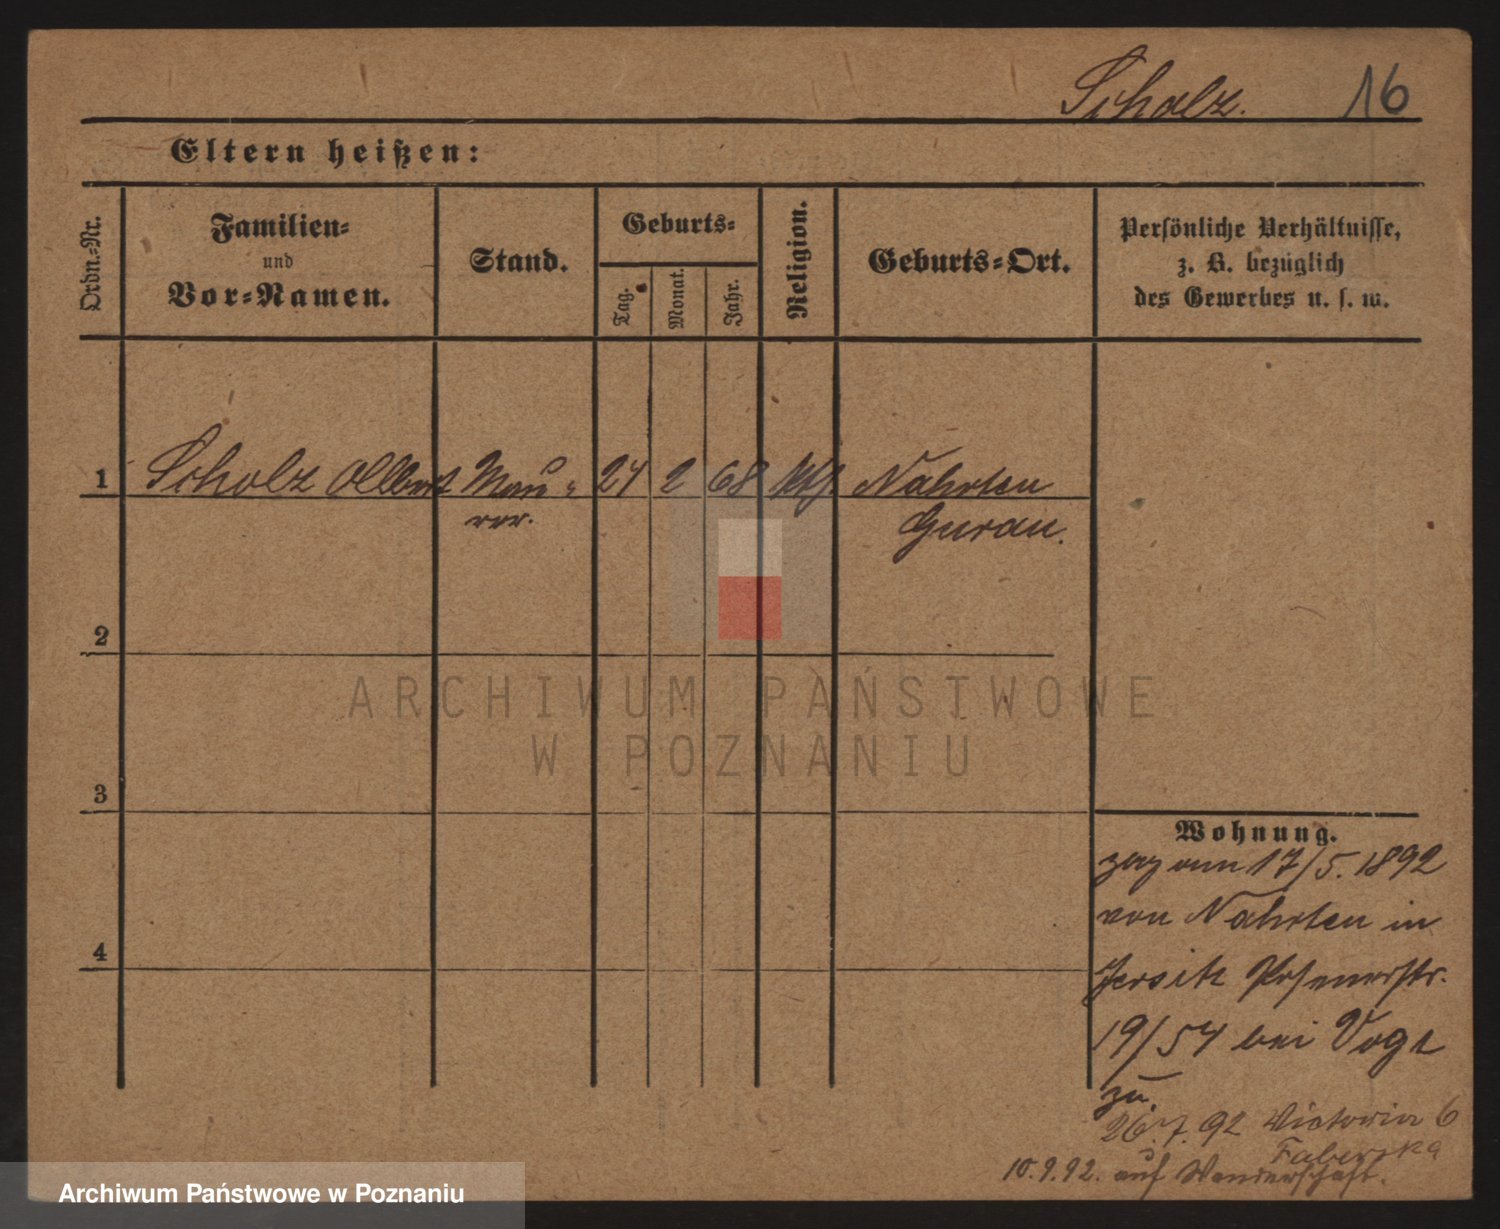 Scholz. 16
Eltern heißen:
Ordn.-Nr.
Familien-
und
Vor-Namen.
Stand.
Geburts-
Tag.
Monat.
Jahr.
Religion.
Geburts-Ort.
Persönliche Verhältnisse,
z. B. bezüglich
des Gewerbes u. s. w.
1 Scholz Albert Mau- 24 2 68 kth Nahrten
rer. Gurau.
2
ARCHIWUM PAŃSTWOWE
W POZNANIU
3
Wohnung.
zog am 17/5. 1892
von Nahrten in
4
Jersitz Posenerstr.
19/54 bei Vogt
zu.
26.7.92 Victoria 6
Faberska
10.9.92. auf Wanderschaft.
Archiwum Państwowe w Poznaniu